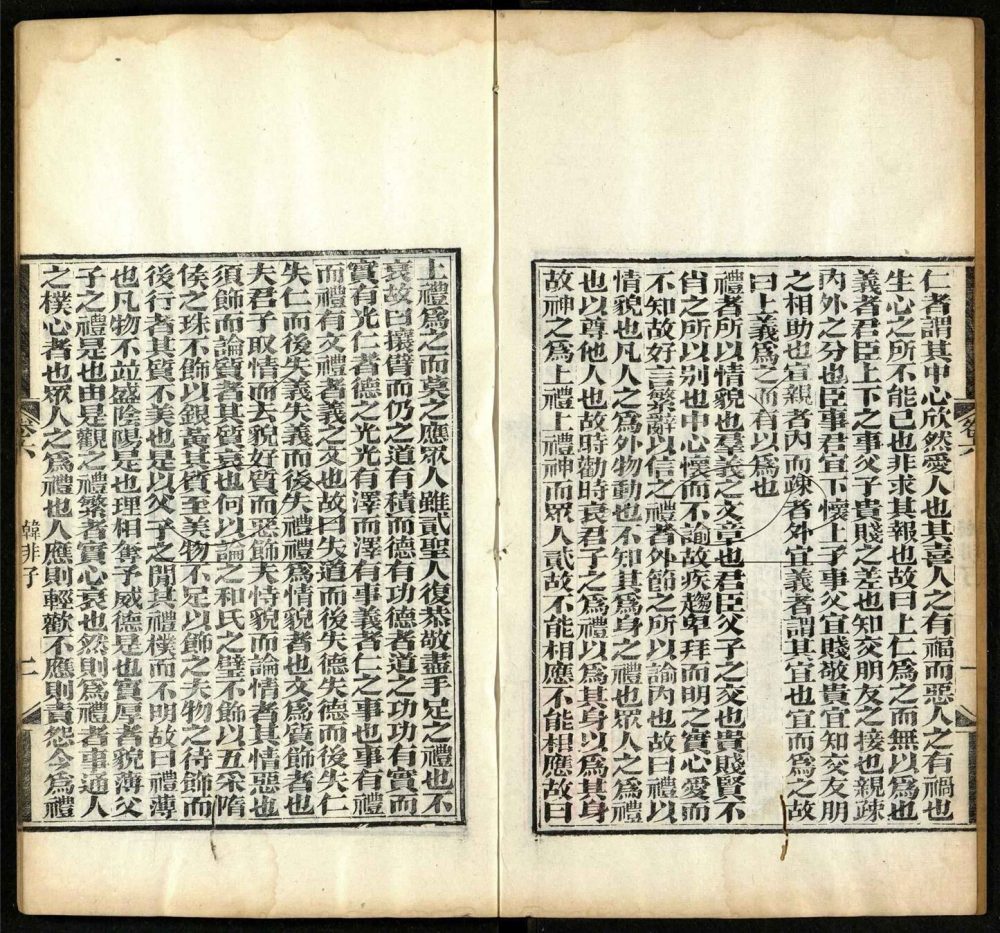 仁者謂其中心欣然愛人也其喜人之有福而惡人之有禍也
生心之所不能已也非求其報也故曰上仁爲之而無以爲也
義者君臣上下之事父子貴賤之差也知交朋友之接也親疎
內外之分也臣事君宜下懷上子事父宜賤敬貴宜知交友朋
之相助也宜親者內而疎者外宜義者謂其宜也宜而爲之故
曰上義爲之而有以爲也
禮者所以情貌也羣義之文章也君臣父子之交也貴賤賢不
肖之所以别也中心懷而不諭故疾趨卑拜而明之實心愛而
不知故好言繁辭以信之禮者外節之所以諭內也故曰禮以
情貌也凡人之爲外物動也不知其爲身之禮也眾人之爲禮
也以尊他人也故時勸時衰君子之爲禮以爲其身以爲其身
故神之爲上禮上禮神而眾人貳故不能相應不能相應故曰
上禮爲之而莫之應眾人雖貳聖人復恭敬盡手足之禮也不
衰故曰攘臂而仍之道有積而德有功德者道之功功有實而
實有光仁者德之光光有澤而澤有事義者仁之事也事有禮
而禮有文禮者義之文也故曰失道而後失德失德而後失仁
失仁而後失義失義而後失禮禮爲情貌者也文爲質飾者也
夫君子取情而去貌好質而惡飾夫恃貌而論情者其情惡也
須飾而論質者其質衰也何以論之和氏之璧不飾以五采隋
侯之珠不飾以銀黄其質至美物不足以飾之夫物之待飾而
後行者其質不美也是以父子之閒其禮樸而不明故曰禮薄
也凡物不竝盛陰陽是也理相奪予威德是也實厚者貌薄父
子之禮是也由是觀之禮繁者實心衰也然則爲禮者事通人
之樸心者也眾人之爲禮也人應則輕歡不應則責怨今爲禮
卷六
韓非子
二